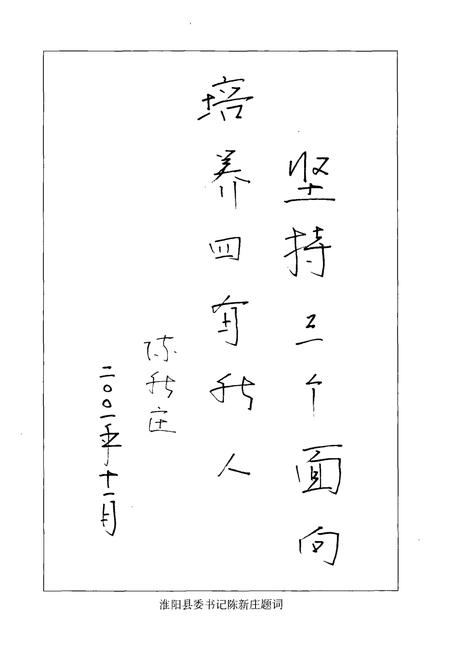 坚持三个面向
培养四有新人
陈新庄
二〇〇一年十一月
淮阳县委书记陈新庄题词